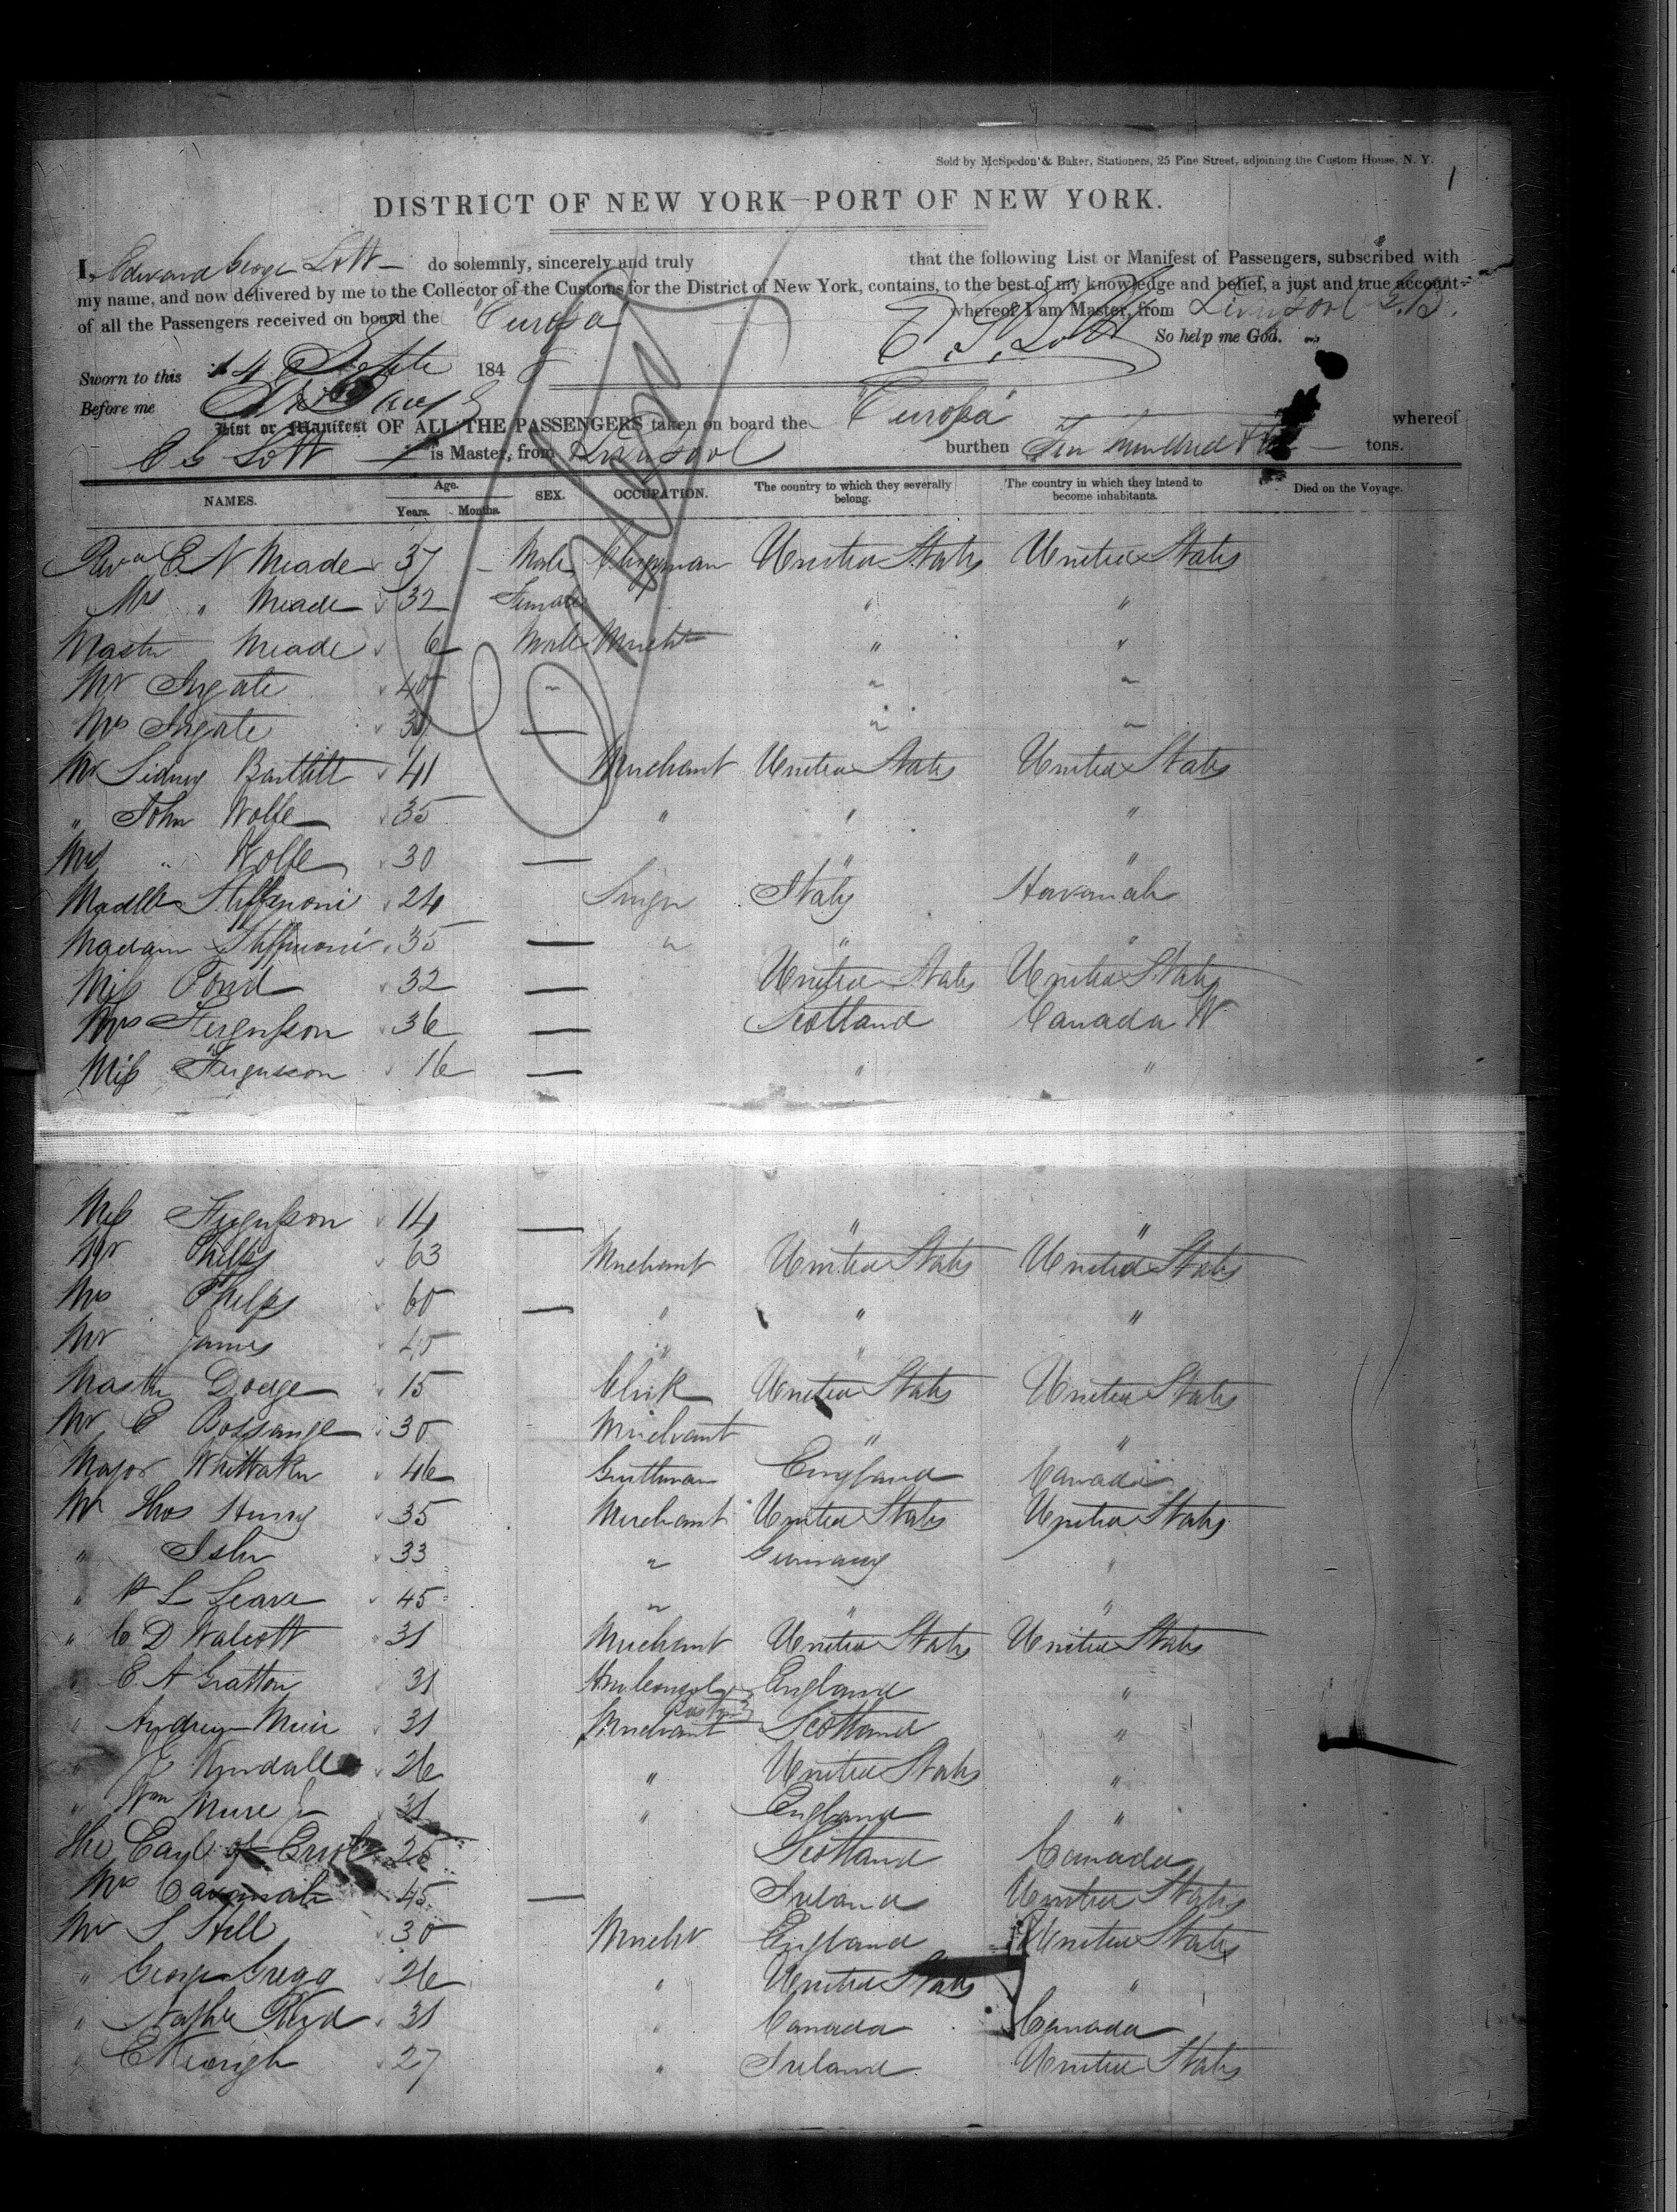 Sold by McSpedon & Baker, Stationers, 25 Pine Street, adjoining the Custom House, N. Y.
1
DISTRICT OF NEW YORK—PORT OF NEW YORK.
I, Edward George Lott — do solemnly, sincerely and truly that the following List or Manifest of Passengers, subscribed with
my name, and now delivered by me to the Collector of the Customs for the District of New York, contains, to the best of my knowledge and belief, a just and true account
of all the Passengers received on board the "Europa whereof I am Master, from Liverpool G.B.
So help me God.
E. G. Lott
Sworn to this 14 Septe 184
Before me
List or Manifest OF ALL THE PASSENGERS taken on board the "Europa" whereof
E G Lott is Master, from Liverpool burthen hundred tons.
NAMES. Age. Years. Months. SEX. OCCUPATION. The country to which they severally belong. The country in which they intend to become inhabitants. Died on the Voyage.
Revd E N Meade 37 - Male Clergyman United States United States
Mrs " Meade 32 Female " "
Master Meade 6 Male Mercht " "
Mr Ingate 40 " " "
Mrs Ingate 30 — " "
Mr Sidney Bartlett 41 Merchant United States United States
" John Wolfe 35 " " "
Mrs " Wolfe 30 — " "
Madlle Steffenoni 24 Singer Italy Havanah
Madam Steffenoni 35 — " " "
Miss Pond 32 — United States United States
Mrs Fergusson 36 — Scotland Canada W
Miss Fergusson 16 — " "
Miss Fergusson 14 — " "
Mr Phelps 63 Merchant United States United States
Mrs Phelps 60 — " " "
Mr James 45 " "
Master Dodge 15 Clerk United States United States
Mr E Bossange 30 Merchant " "
Major Whittaker 46 Gentleman England Canada
Mr Thos Hussey 35 Merchant United States United States
" 33 " Germany "
" 45 " " "
" C D Walcott 31 Merchant United States United States
" E. A Grattan 31 England "
" Andrew Muir 31 Merchant Scotland "
" Kendall 26 " United States "
" Wm Mure Jr 31 " England "
The Earl of 25 Scotland Canada
Mrs Cavanah 45 — Ireland United States
Mr S Hill 30 Mercht England United States
" George Gregg 26 " United States "
" Reid 31 " Canada Canada
" E Keough 27 " Ireland United States